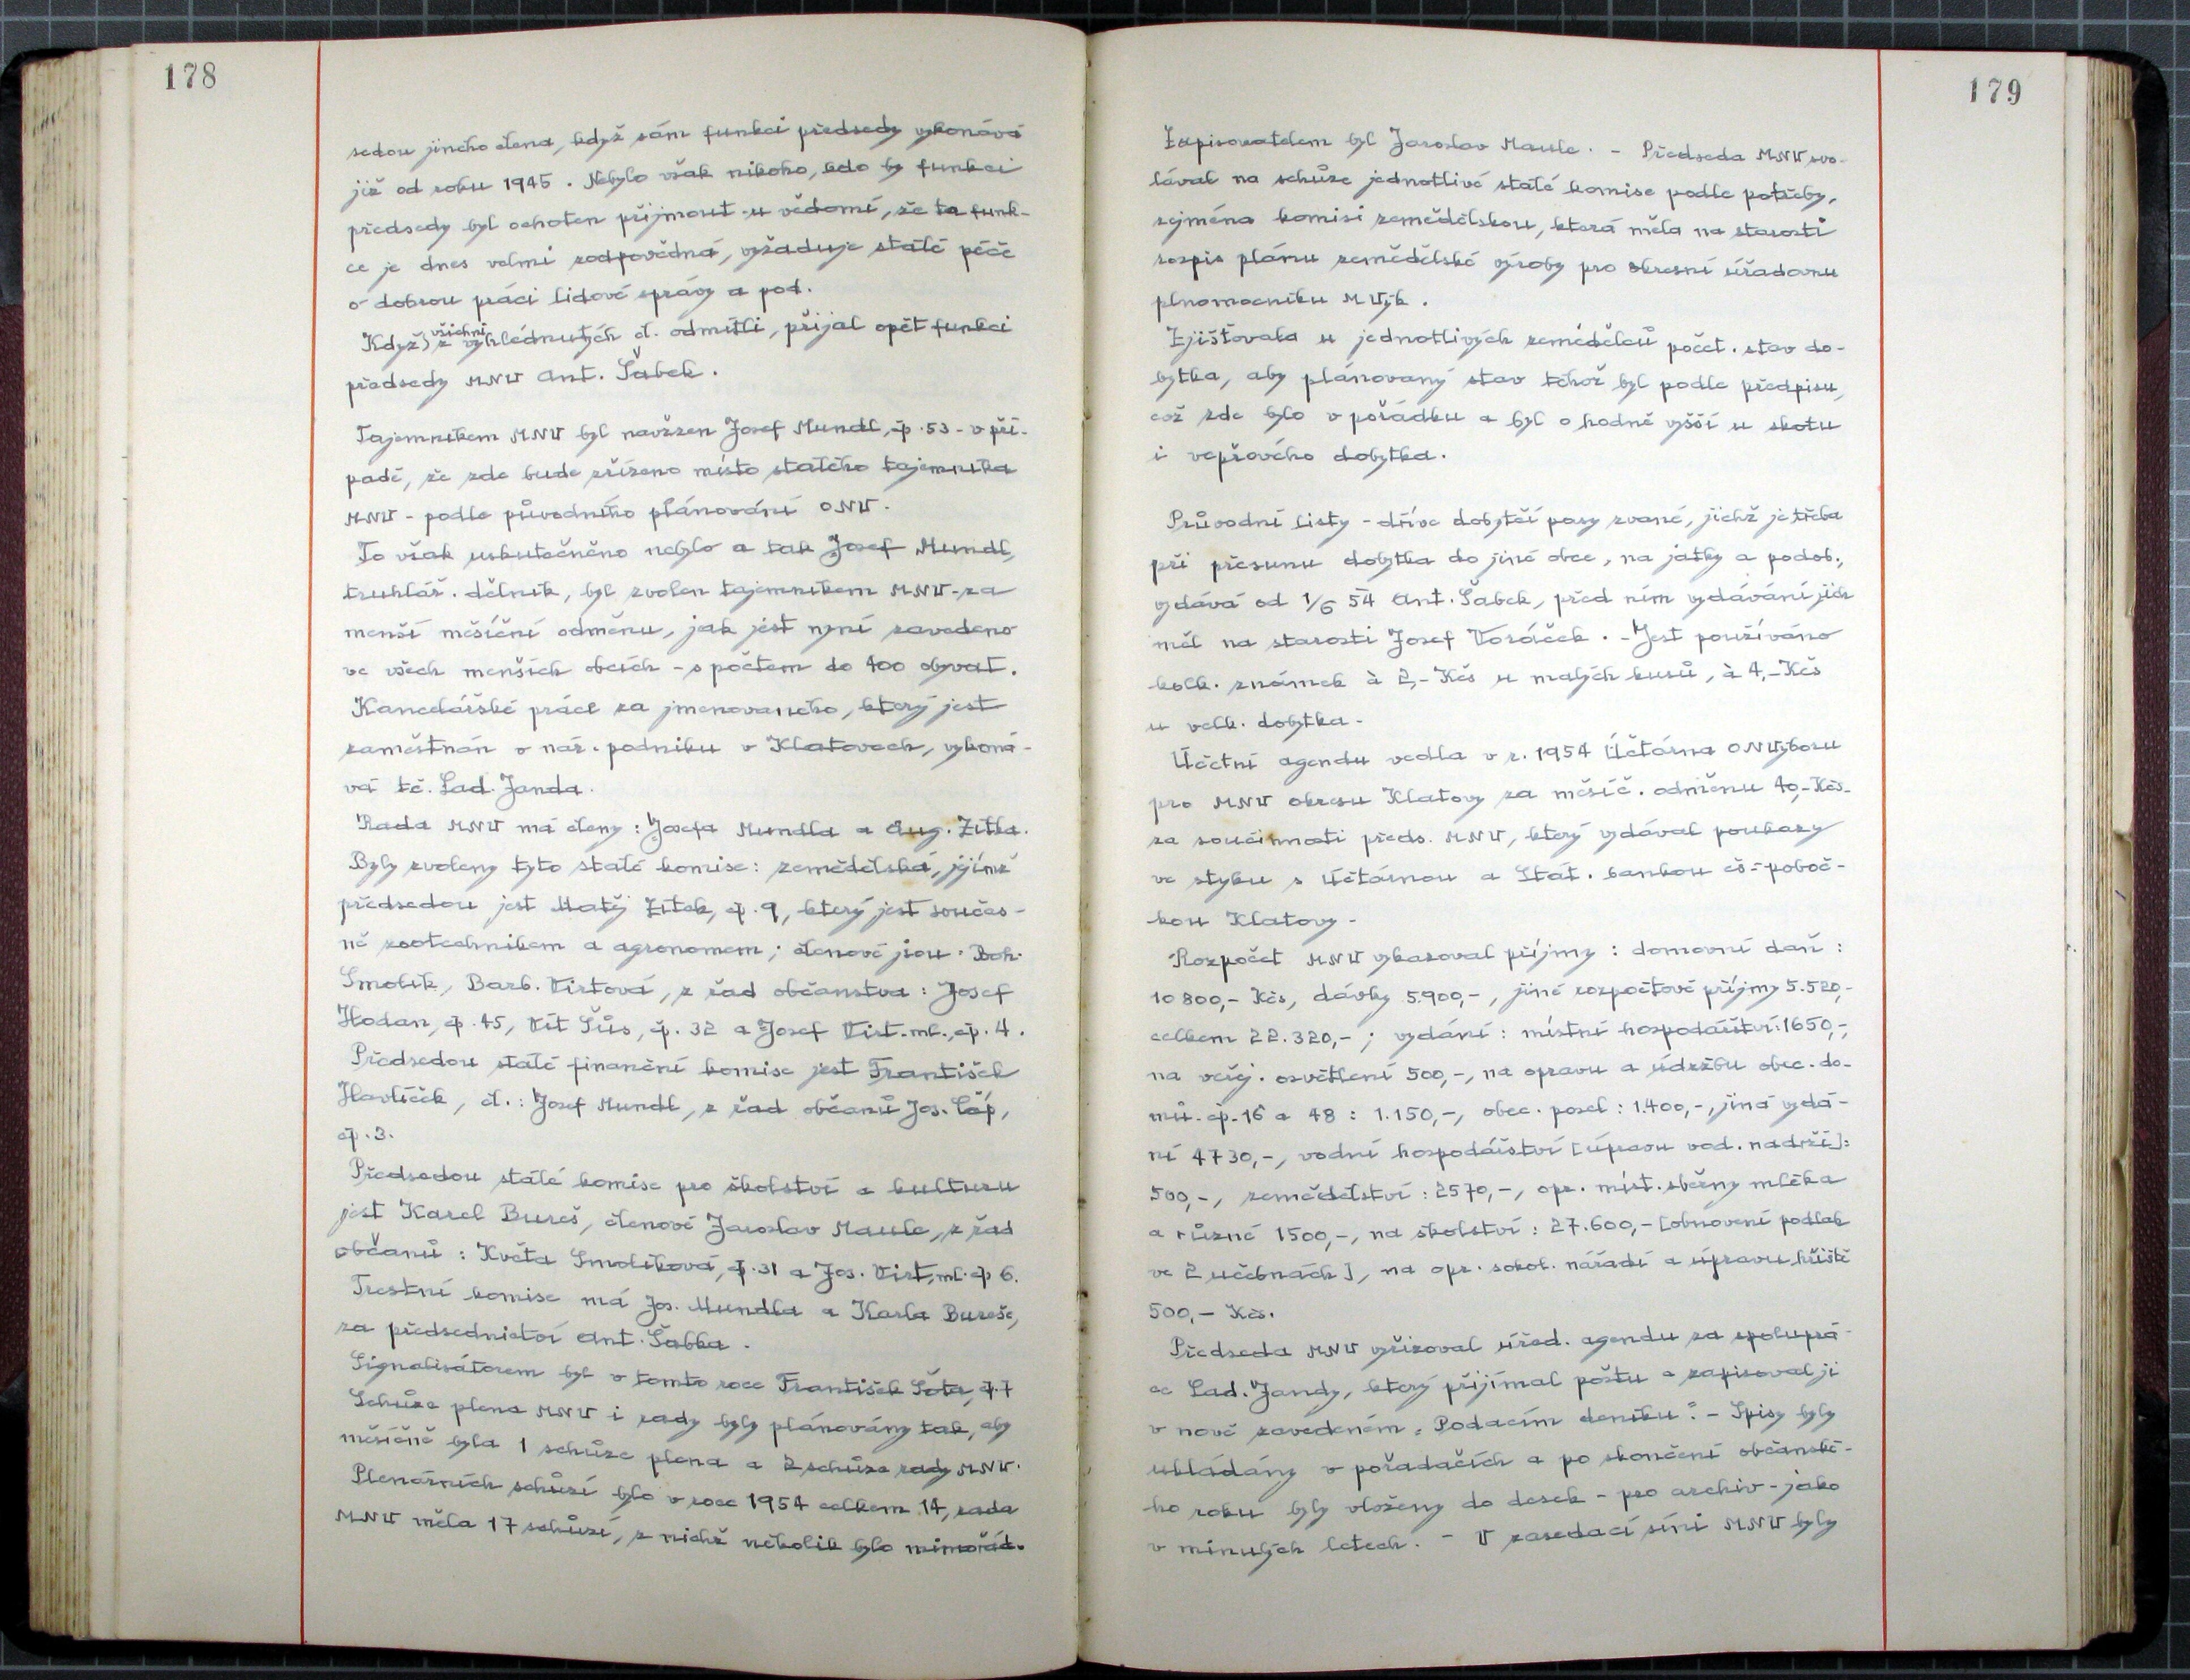 178
sedou jiného člena, když sám funkci předsedy vykonává
již od roku 1945. Nebylo však nikoho, kdo by funkci
předsedy byl ochoten přijmout - u vědomí, že ta funk-
ce je dnes velmi zodpovědná, vyžaduje stálé péče
o dobrou práci lidové správy a pod.
Když všichni z vyhlédnutých čl. odmítli, přijal opět funkci
předsedy MNV Ant. Šabek.
Tajemníkem MNV byl navržen Josef Mundl, čp. 53 - v pří-
padě, že zde bude zřízeno místo stálého tajemníka
MNV - podle původního plánování ONV.
To však uskutečněno nebylo a tak Josef Mundl,
truhlář. dělník, byl zvolen tajemníkem MNV - za
menší měsíční odměnu, jak jest nyní zavedeno
ve všech menších obcích - s počtem do 400 obyvat.
Kancelářské práce za jmenovaného, který jest
zaměstnán v nár. podniku v Klatovech, vykoná-
vá tč. Lad. Janda.
Rada MNV má členy: Josefa Mundla a Aug. Zítka.
Byly zvoleny tyto stálé komise: zemědělská, jejímž
předsedou jest Matěj Zítek, čp. 9, který jest součas-
ně zootechnikem a agronomem; členové jsou: Boh.
Smolík, Barb. Virtová, z řad občanstva: Josef
Hodan, čp. 45, Vít Šůs, čp. 32 a Josef Virt. ml., čp. 4.
Předsedou stálé finanční komise jest František
Havlíček, čl.: Josef Mundl, z řad občanů Jos. Čáp,
čp. 3.
Předsedou stálé komise pro školství a kulturu
jest Karel Bureš, členové Jaroslav Maule, z řad
občanů: Květa Smolíková, čp. 31 a Jos. Virt, ml. čp 6.
Trestní komise má Jos. Mundla a Karla Bureše,
za předsednictví Ant. Šabka.
Signalisátorem byl v tomto roce František Šota, čp. 7
Schůze plena MNV i rady byly plánovány tak, aby
měsíčně byla 1 schůze plena a 2 schůze rady MNV.
Plenárních schůzí bylo v roce 1954 celkem 14, rada
MNV měla 17 schůzí, z nichž několik bylo mimořád.
179
Zapisovatelem byl Jaroslav Maule. - Předseda MNV svo-
lával na schůze jednotlivé stálé komise podle potřeby,
zejména komisi zemědělskou, která měla na starosti
rozpis plánu zemědělské výroby pro okresní úřadovnu
plnomocníku MVýk.
Zjišťovala u jednotlivých zemědělců počet. stav do-
bytka, aby plánovaný stav téhož byl podle předpisu,
což zde bylo v pořádku a byl o hodně vyšší u skotu
i vepřového dobytka.
Průvodní listy - dříve dobytčí pasy zvané, jichž je třeba
při přesunu dobytka do jiné obce, na jatky a podob.,
vydává od 1/6 54 Ant. Šabek, před ním vydávání jich
měl na starosti Josef Voráček. - Jest používáno
kolk. známek à 2,- Kčs u malých kusů, à 4,- Kčs
u velk. dobytka.
Účetní agendu vedla v r. 1954 Účtárna ONVýboru
pro MNV okresu Klatovy za měsíč. odměnu 40,- Kčs.
za součinnosti předs. MNV, který vydával poukazy
ve styku s Účtárnou a Stát. bankou čs - poboč-
kou Klatovy.
Rozpočet MNV vykazoval příjmy: domovní daň:
10 800,- Kčs, dávky 5.900,-, jiné rozpočtové příjmy 5.520,-
celkem 22.320,-; vydání: místní hospodářství: 1650,-,
na veřej. osvětlení 500,-, na opravu a údržbu obec. do-
mů čp. 16 a 48: 1.150,-, obec. posel: 1.400,-, jiná vydá-
ní 4730,-, vodní hospodářství [úpravu vod. nadrží]:
500,-, zemědělství: 2570,-, opr. míst. sběrny mléka
a různé 1500,-, na školství: 27.600,- [obnovení podlah
ve 2 učebnách], na opr. sokol. nářadí a úpravu hřiště
500,- Kčs.
Předseda MNV vyřizoval úřed. agendu za spoluprá-
ce Lad. Jandy, který přijímal poštu a zapisoval ji
v nově zavedeném „Podacím deníku". - Spisy byly
ukládány v pořadačích a po skončení občanské-
ho roku byly vloženy do desek - pro archiv - jako
v minulých letech. - V zasedací síni MNV byly